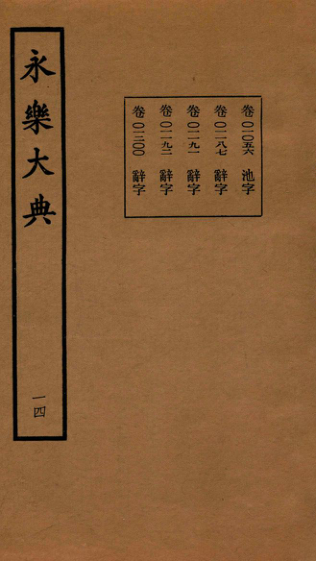 永樂大典
一四
卷〇一〇五六 池字
卷〇一一八七 辭字
卷〇一一九一 辭字
卷〇一一九二 辭字
卷〇一二〇〇 辭字